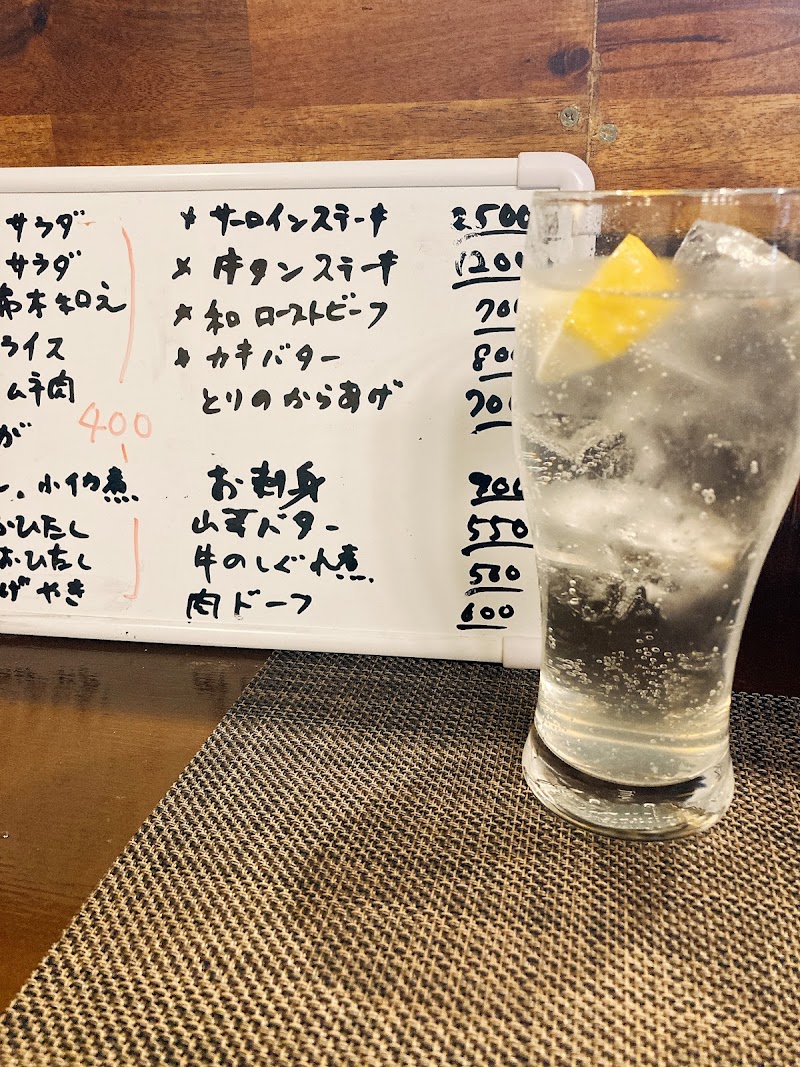 サラダ
サラダ
和え
ライス
ム牛肉
400
が
小イカ煮
おひたし
おひたし
げやき
* サーロインステーキ 2500
* 牛タンステーキ 1200
* 和ローストビーフ 70
* カキバター 80
とりのからあげ 70
お刺身 900
山芋バター 550
牛のしぐれ煮 500
肉ドーフ 600